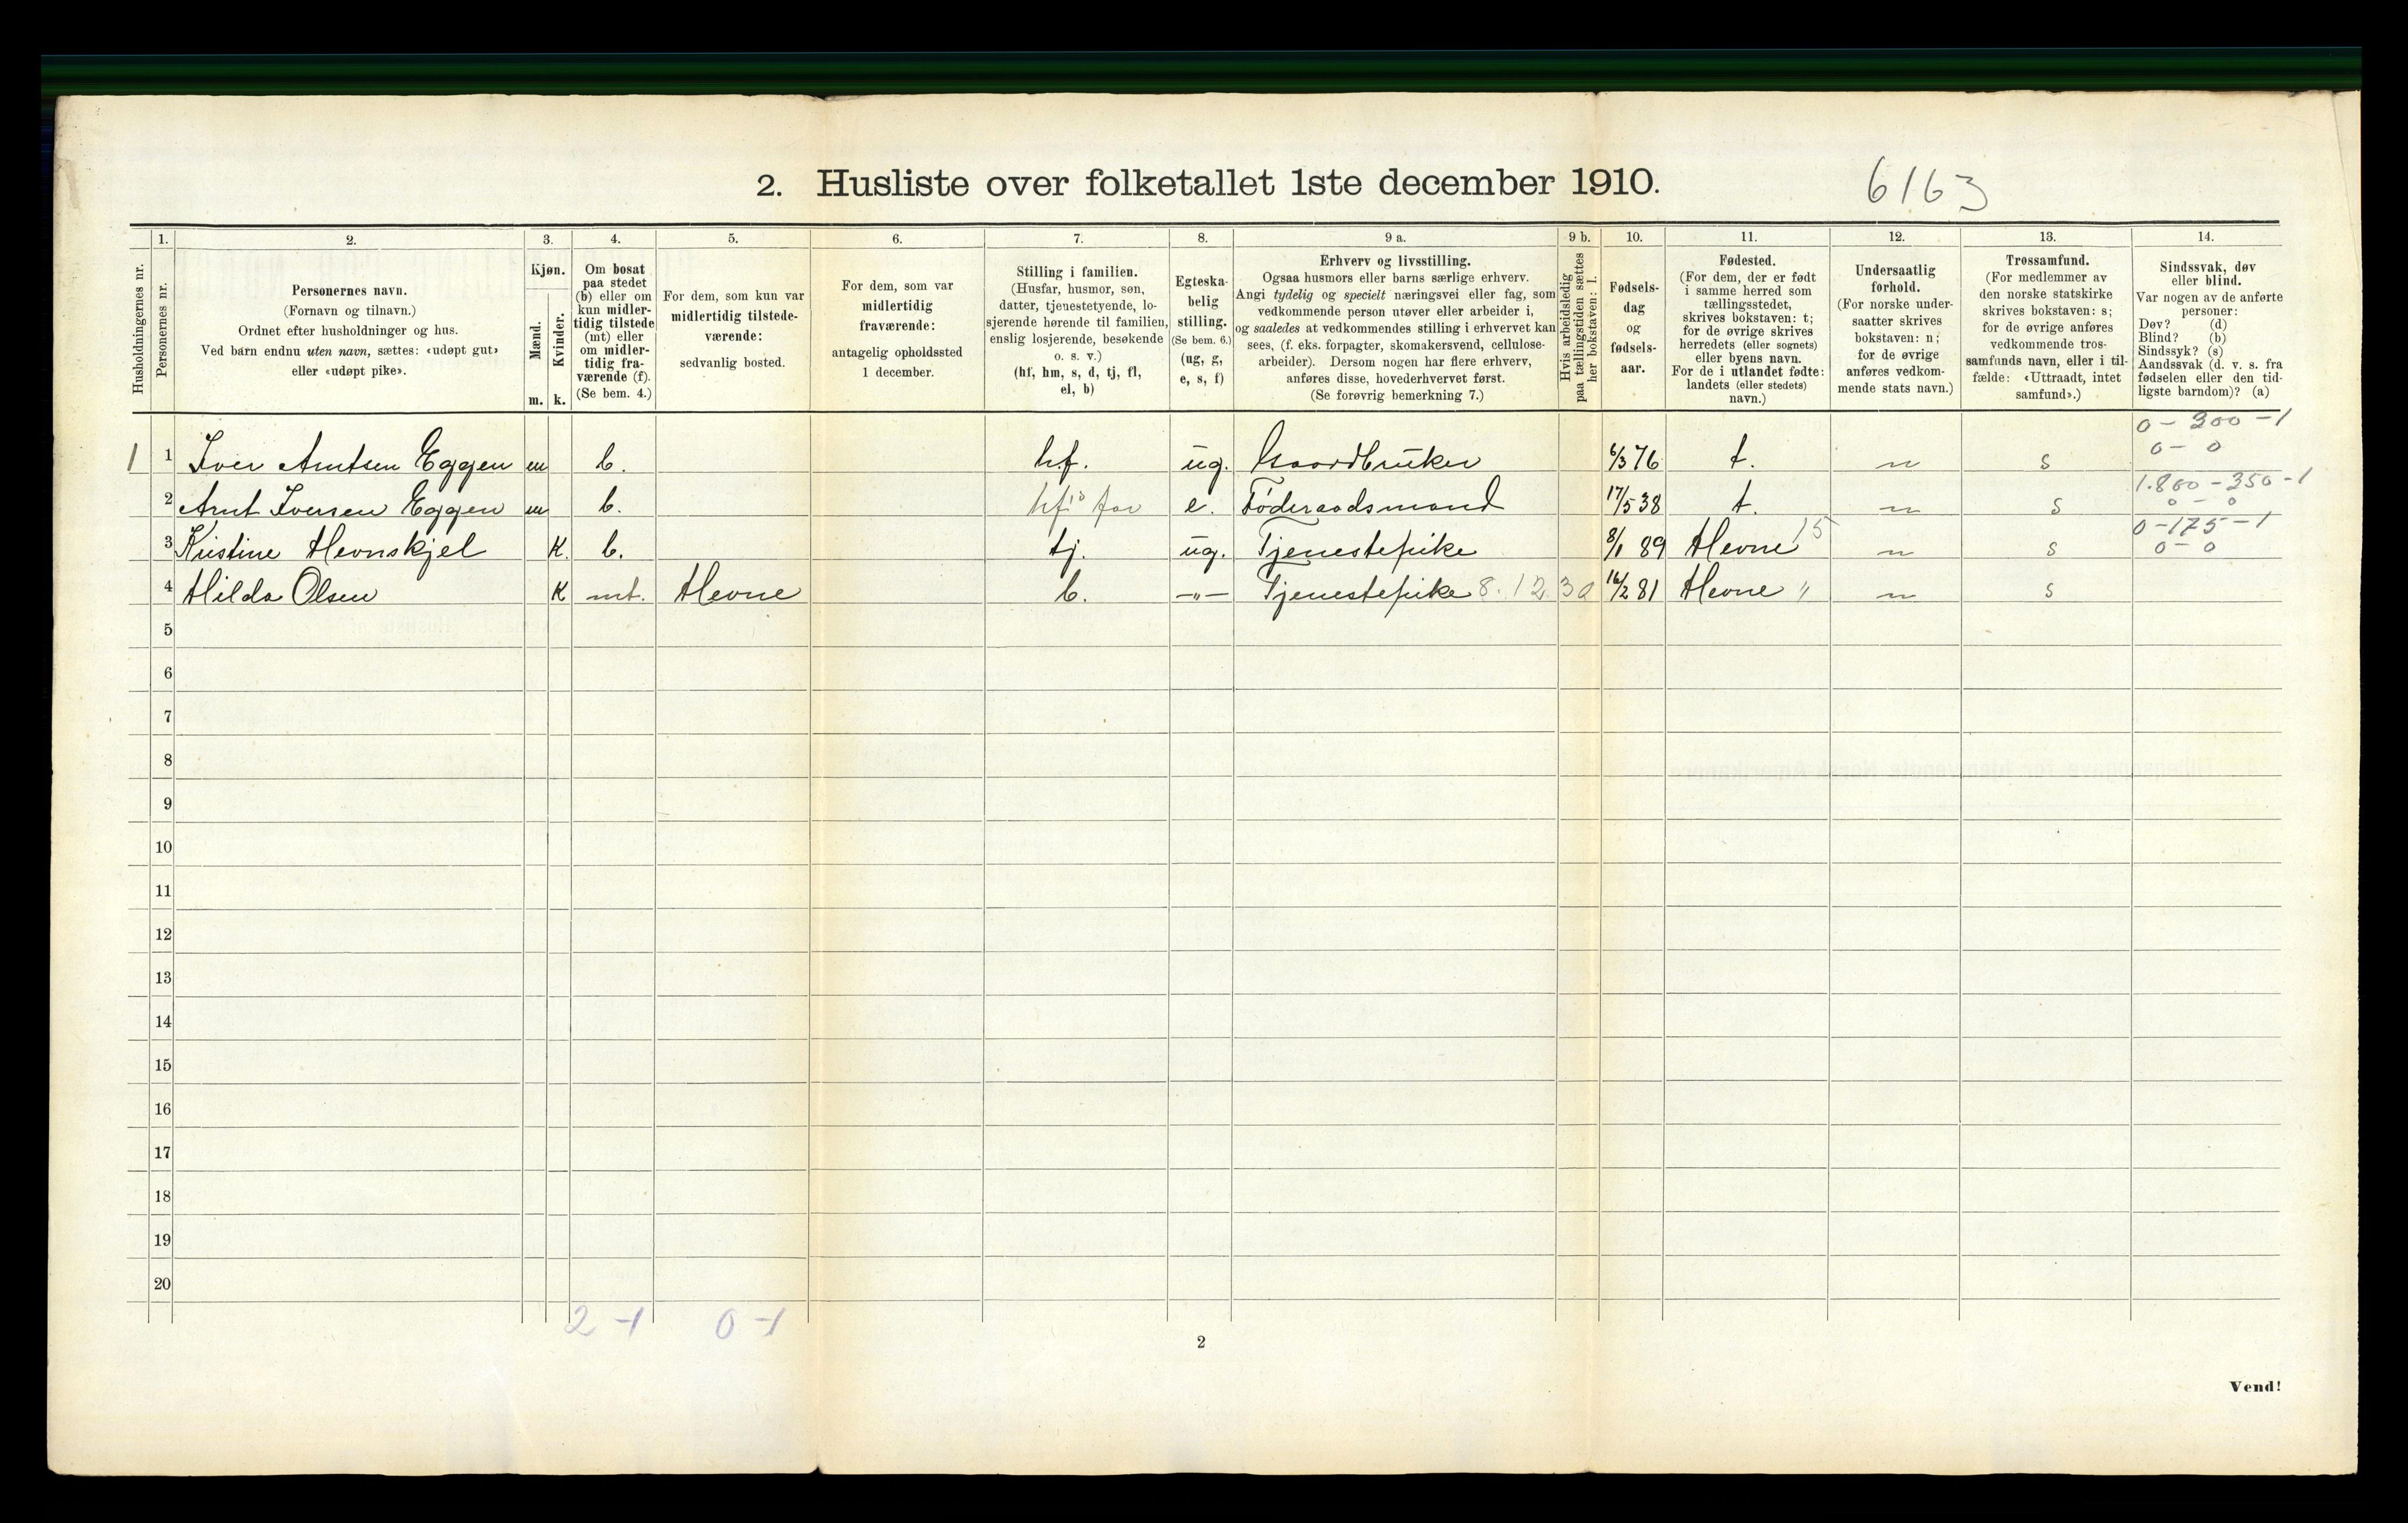 2. Husliste over folketallet 1ste december 1910.
6163
1. 2. 3. 4. 5. 6. 7. 8. 9 a. 9 b. 10. 11. 12. 13. 14.
Husholdningernes nr.
Personernes nr.
Personernes navn.
(Fornavn og tilnavn.)
Ordnet efter husholdninger og hus.
Ved barn endnu uten navn, sættes: «udøpt gut»
eller «udøpt pike».
Kjøn.
Mænd.
Kvinder.
m. k.
Om bosat
paa stedet
(b) eller om
kun midler-
tidig tilstede
(mt) eller
om midler-
tidig fra-
værende (f).
(Se bem. 4.)
For dem, som kun var
midlertidig tilstede-
værende:
sedvanlig bosted.
For dem, som var
midlertidig
fraværende:
antagelig opholdssted
1 december.
Stilling i familien.
(Husfar, husmor, søn,
datter, tjenestetyende, lo-
sjerende hørende til familien,
enslig losjerende, besøkende
o. s. v.)
(hf, hm, s, d, tj, fl,
el, b)
Egteska-
belig
stilling.
(Se bem. 6.)
(ug, g,
e, s, f)
Erhverv og livsstilling.
Ogsaa husmors eller barns særlige erhverv.
Angi tydelig og specielt næringsvei eller fag, som
vedkommende person utøver eller arbeider i,
og saaledes at vedkommendes stilling i erhvervet kan
sees, (f. eks. forpagter, skomakersvend, cellulose-
arbeider). Dersom nogen har flere erhverv,
anføres disse, hovederhvervet først.
(Se forøvrig bemerkning 7.)
Hvis arbeidsledig
paa tællingstiden sættes
her bokstaven: l.
Fødsels-
dag
og
fødsels-
aar.
Fødested.
(For dem, der er født
i samme herred som
tællingsstedet,
skrives bokstaven: t;
for de øvrige skrives
herredets (eller sognets)
eller byens navn.
For de i utlandet fødte:
landets (eller stedets)
navn.)
Undersaatlig
forhold.
(For norske under-
saatter skrives
bokstaven: n;
for de øvrige
anføres vedkom-
mende stats navn.)
Trossamfund.
(For medlemmer av
den norske statskirke
skrives bokstaven: s;
for de øvrige anføres
vedkommende tros-
samfunds navn, eller i til-
fælde: «Uttraadt, intet
samfund».)
Sindssvak, døv
eller blind.
Var nogen av de anførte
personer:
Døv? (d)
Blind? (b)
Sindssyk? (s)
Aandssvak (d. v. s. fra
fødselen eller den tid-
ligste barndom)? (a)
0 - 300 - 1
1 1 Iver Arntsen Eggen m b. hf. ug. Gaardbruker 6/3 76 t. n s 0 - 0
1.800 - 350 - 1
2 Arnt Iversen Eggen m b. hf's far e. Føderaadsmand 17/5 38 t. n s 0 - 0
0 - 175 - 1
3 Kristine Hevnskjel K. b. tj. ug. Tjenestepike 8/1 89 Hevne 15 n s 0 - 0
4 Hilda Olsen K mt. Hevne b. -"- Tjenestepike 8.12.30 16/2 81 Hevne " n s
5
6
7
8
9
10
11
12
13
14
15
16
17
18
19
20
2 - 1 0 - 1
2
Vend!